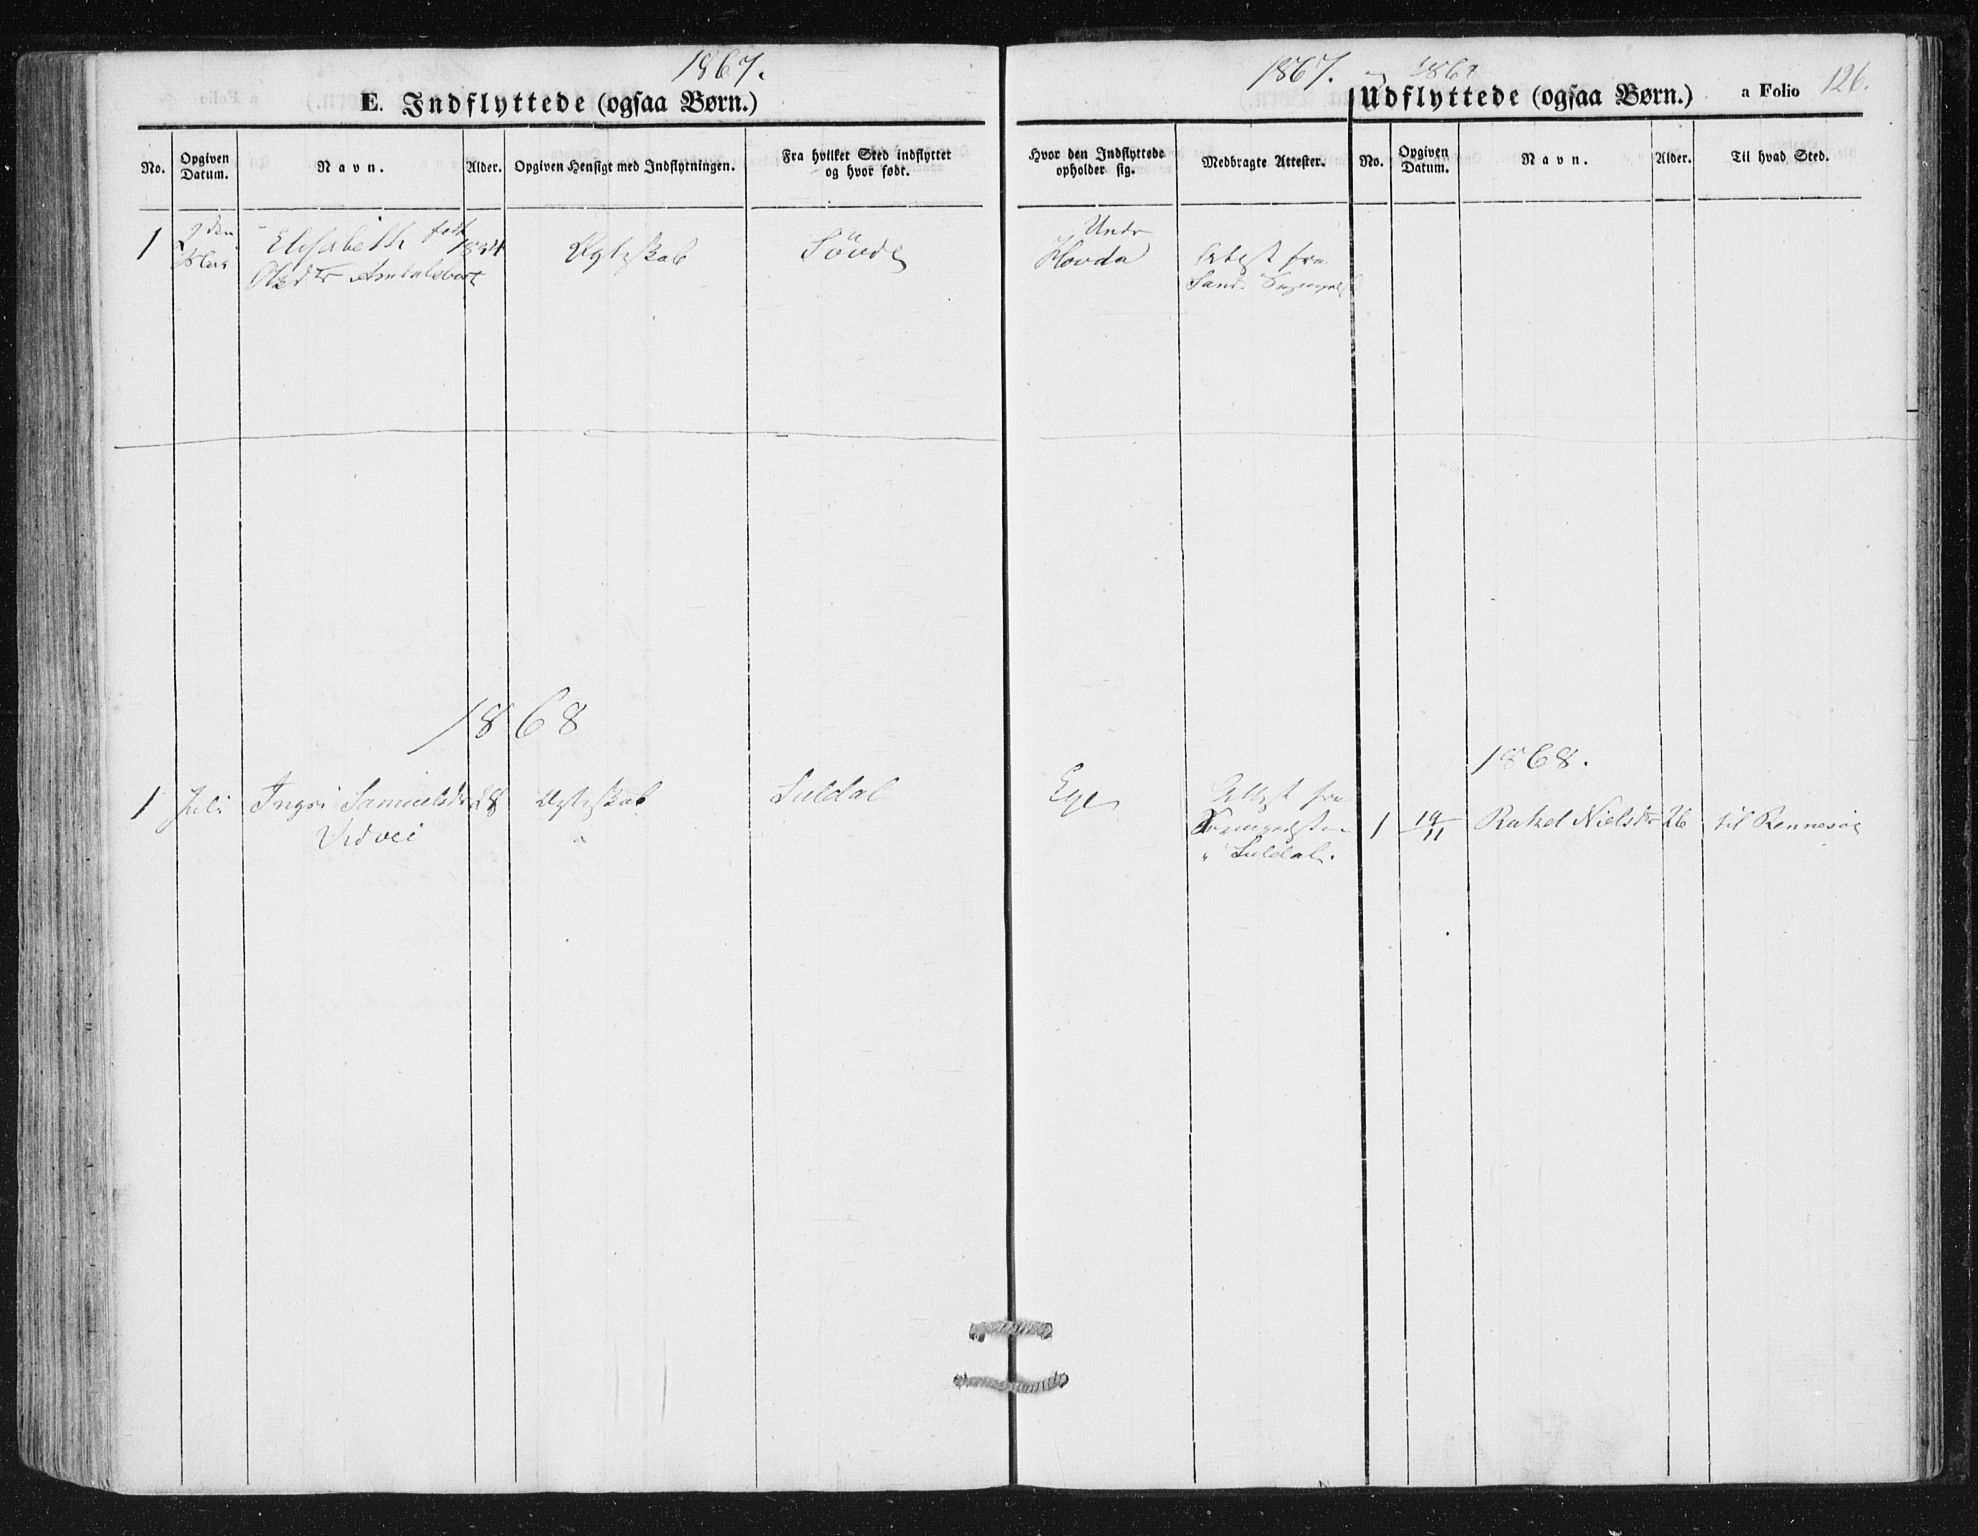 1867.
E. Indflyttede (ogsaa Børn.)
No.
Opgiven Datum.
Navn.
Alder.
Opgiven Hensigt med Indflytningen.
Fra hvilket Sted indflyttet og hvor født.
1
2den
Elisabeth født 1834
Olsdtr
Ægteskab
Søvde
1868
1
Juli
Ingri Samuelsdtr
Vedvei
28
Ægteskab
"
Suldal
1867. 1867
Udflyttede (ogsaa Børn.)
a Folio 126.
Hvor den Indflyttede opholder sig.
Medbragte Attester.
No.
Opgiven Datum.
Navn.
Alder.
Til hvad Sted.
Undr
Hovda
Attest fra
Sand.
Ege
Attest fra
Sognepresten
i Suldal.
1868.
1
19/11
Rakel Nielsdtr
26
til Rennesøe